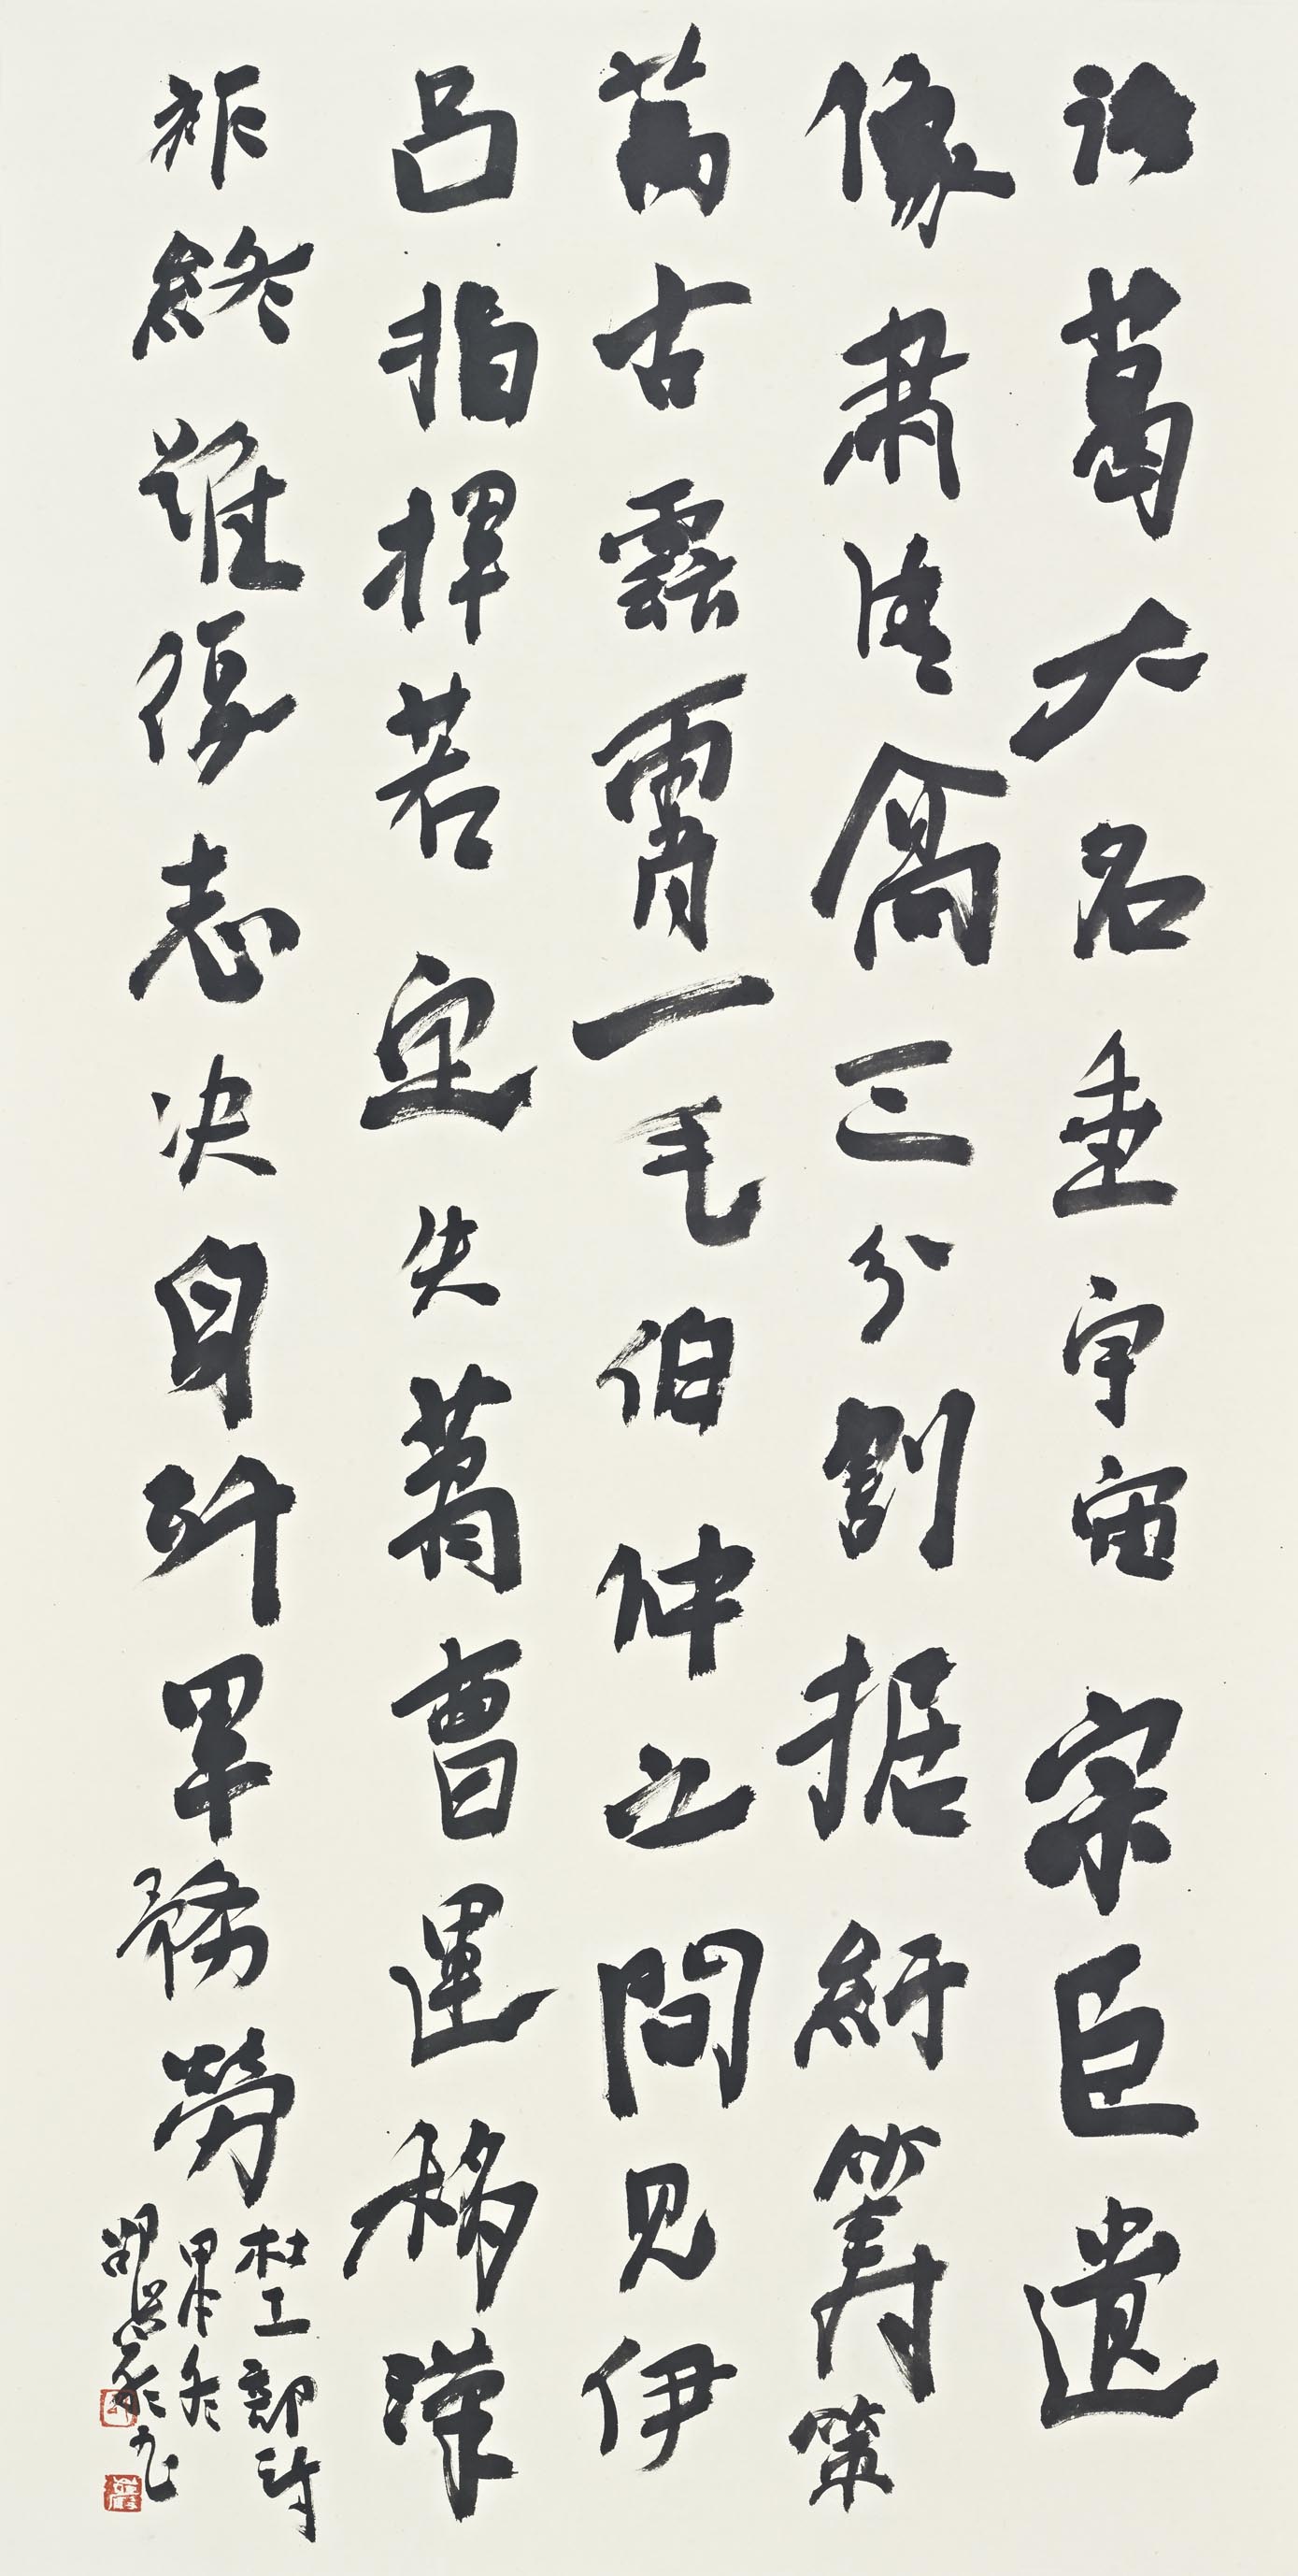 諸葛大名垂宇宙宗臣遺
像肅清高三分割据紆籌策
萬古雲霄一毛伯仲之間見伊
呂指揮若定失蕭曹運移漢
祚終難復志决身歼軍務勞
杜工部詩
甲午冬